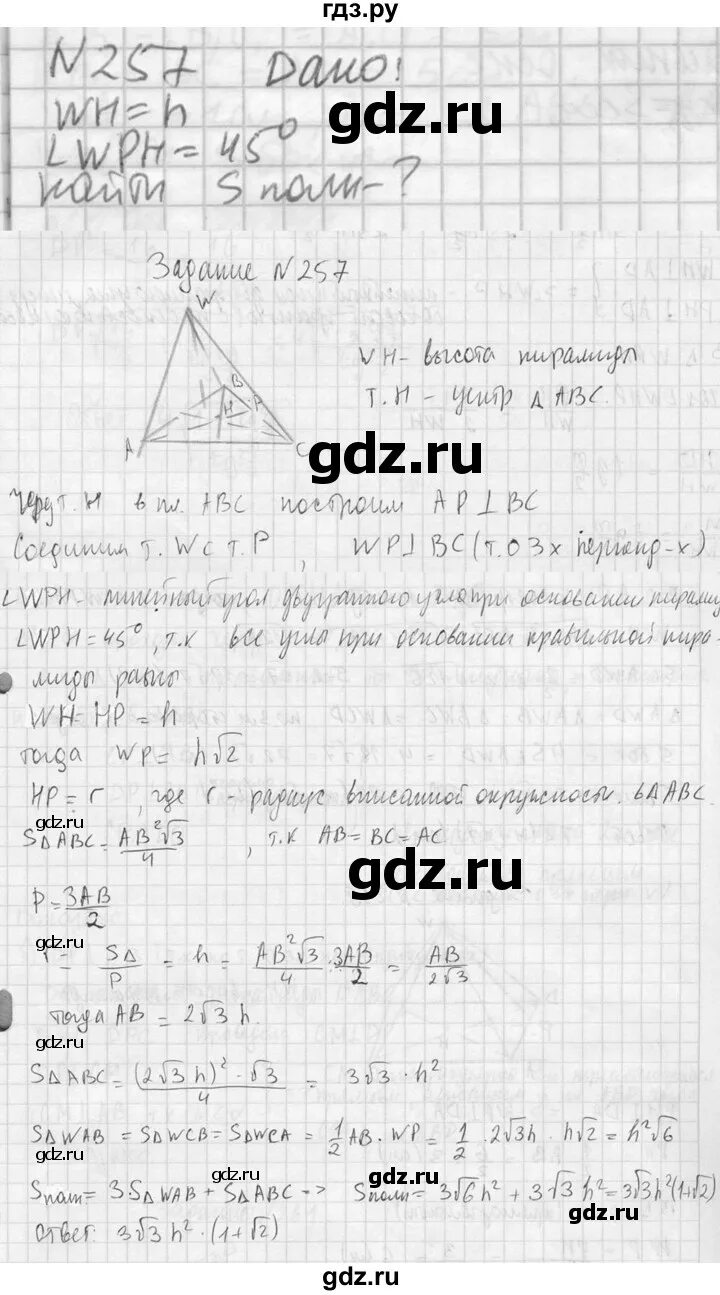 гдз.ру
N257 Дано!
WH = h
∠WPH = 45°
найти Sполн-?
gdz.ru
Задание N257
W
B
P
H
A
C
WH - высота пирамиды
т. H - центр △ABC.
gdz.ru
Через т. H в пл. ABC построим AP⊥BC
Соединим т. W с т. P, WP⊥BC (т. о 3х перпенд-х)
∠WPH - линейный угол двугранного угла при основании пирамид
∠WPH = 45°, т.к все угла при основании правильной пира-
миды равны
WH = HP = h
тогда WP = h√2
HP = r, где r - радиус вписанной окружности. в △ABC.
gdz.ru
S△ABC = AB²√3/4, т.к AB = BC = AC
gdz.ru
P = 3AB/2
gdz.ru
r = S△/P = h = AB²√3/4 : 3AB/2 = AB/2√3
тогда AB = 2√3 h.
gdz.ru
S△ABC = (2√3 h)²·√3/4 = 3√3 · h²
S△WAB = S△WCB = S△WCA = 1/2 AB · WP = 1/2 · 2√3h · h√2 = h²√6
gdz.ru
Sполн = 3S△WAB + S△ABC => Sполн = 3√6 h² + 3√3 h² = 3√3 h²(1+√2)
gdz.ru
Ответ: 3√3 h² · (1+√2)
gdz.ru
gdz.ru